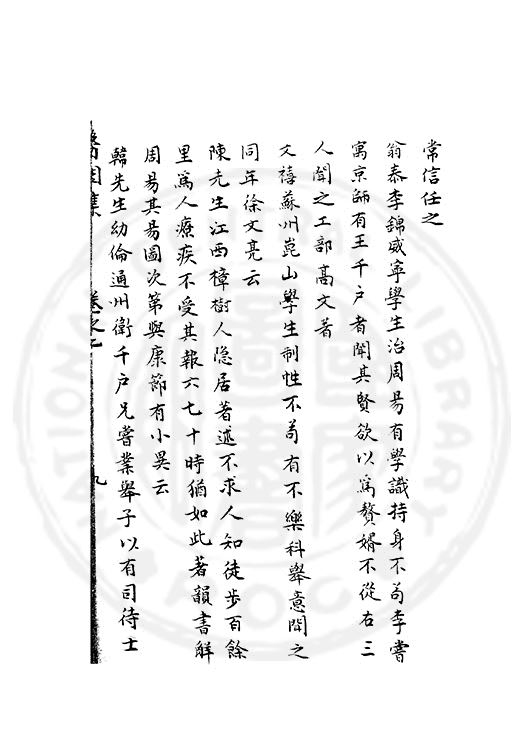 常信任之
翁泰李錦咸寧學生治周易有學識持身不苟李嘗
寓京師有王千户者聞其賢欲以爲贅婿不從右三
人聞之工部高文著
文禧蘇州崑山學生制性不苟有不樂科舉意聞之
同年徐文亮云
陳先生江西樟樹人隐居著述不求人知徒步百餘
里爲人療疾不受其報六七十時猶如此著韻書解
周易其易圖次第與康節有小異云
韓先生幼倫通州衛千户兄嘗業舉子以有司待士
醫閭集 卷之 九